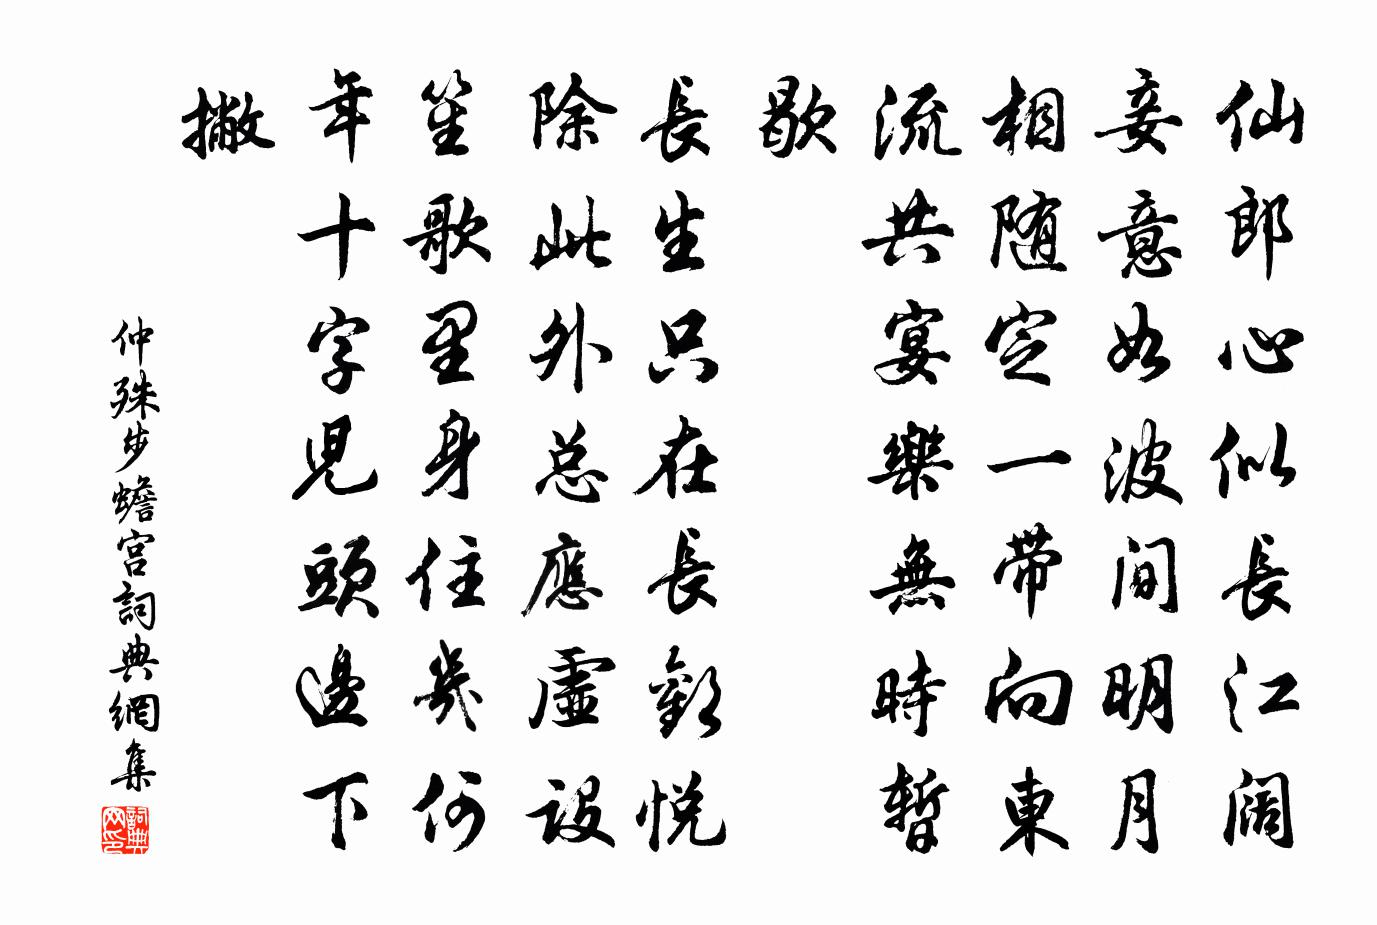 仙郎心似長江闊
妾意如波間明月
相随定一带向東
流共宴樂無時暫
歇
長生只在長歡悅
除此外总應虛設
笙歌里身住幾何
年十字兒頭邊下
撇
仲殊步蟾宮詞典網集
詞典网印